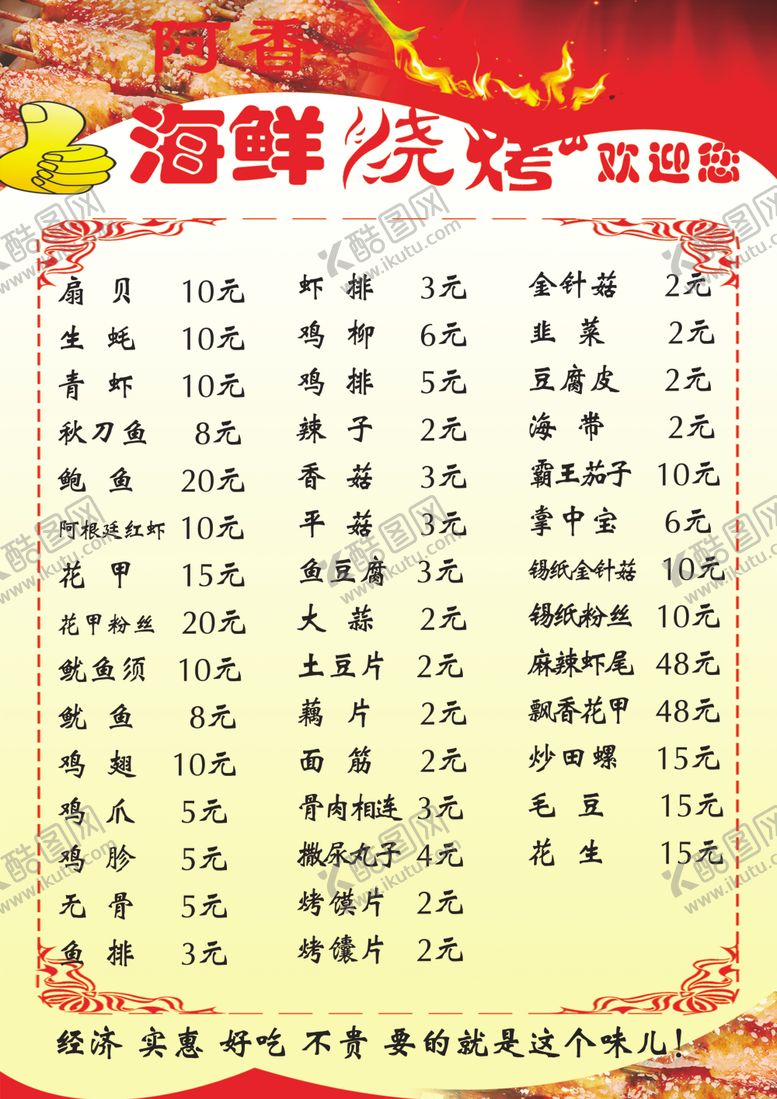 阿香
海鲜烧烤 欢迎您
扇贝 10元 虾排 3元 金针菇 2元
生蚝 10元 鸡柳 6元 韭菜 2元
青虾 10元 鸡排 5元 豆腐皮 2元
秋刀鱼 8元 辣子 2元 海带 2元
鲍鱼 20元 香菇 3元 霸王茄子 10元
阿根廷红虾 10元 平菇 3元 掌中宝 6元
花甲 15元 鱼豆腐 3元 锡纸金针菇 10元
花甲粉丝 20元 大蒜 2元 锡纸粉丝 10元
鱿鱼须 10元 土豆片 2元 麻辣虾尾 48元
鱿鱼 8元 藕片 2元 飘香花甲 48元
鸡翅 10元 面筋 2元 炒田螺 15元
鸡爪 5元 骨肉相连 3元 毛豆 15元
鸡胗 5元 撒尿丸子 4元 花生 15元
无骨 5元 烤馍片 2元
鱼排 3元 烤馕片 2元
经济 实惠 好吃 不贵 要的就是这个味儿!
酷图网
www.ikutu.com